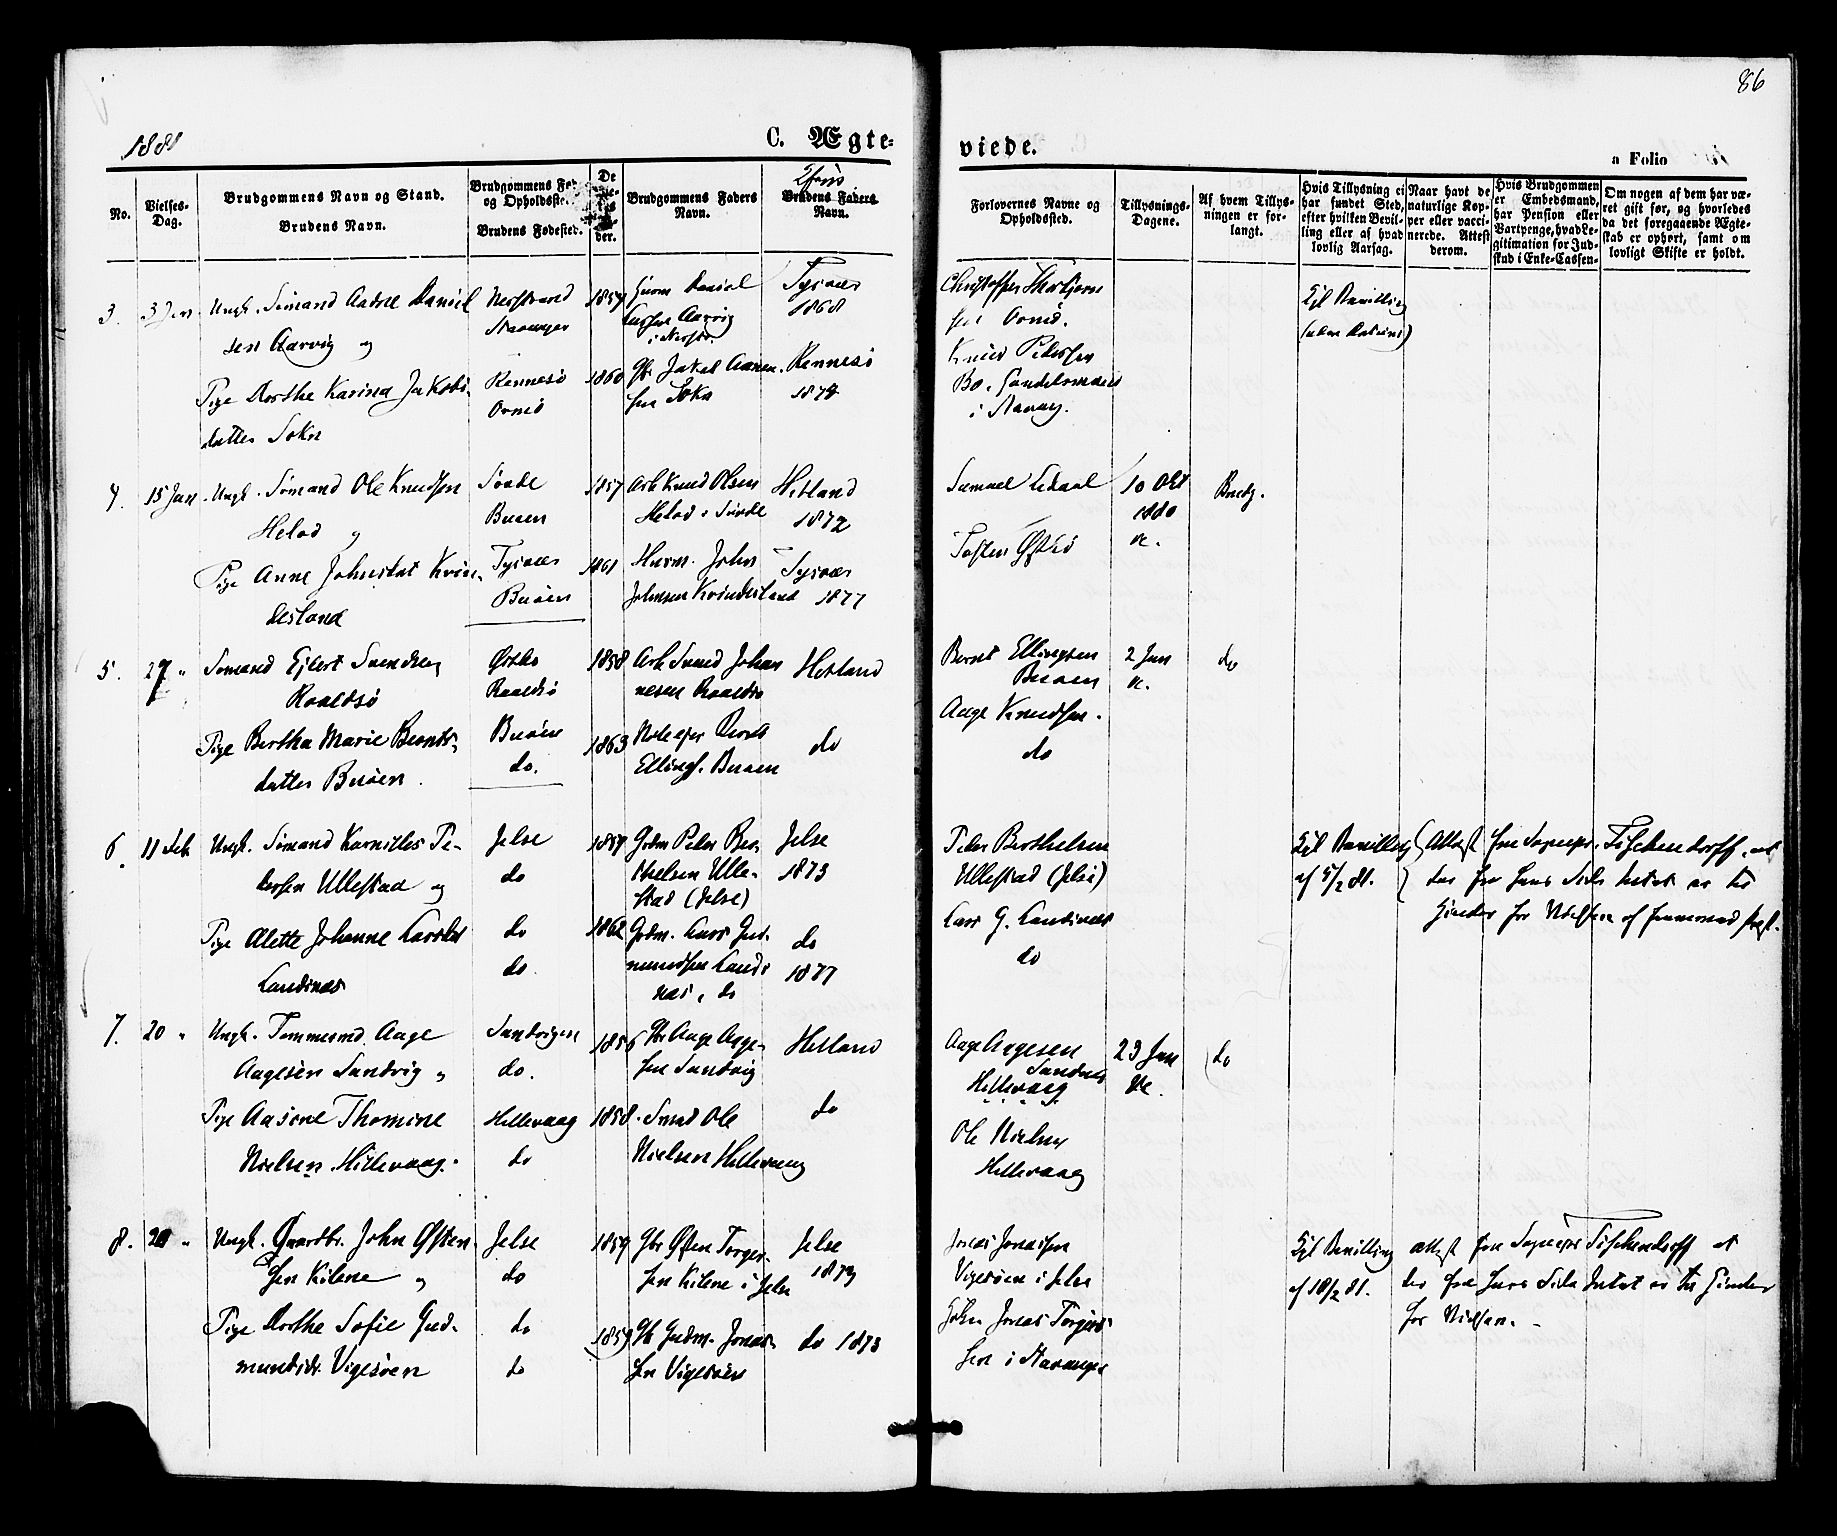 86
1881
C. Ægte-
viede.
a Folio
No.
Vielses-
Dag.
Brudgommens Navn og Stand.
Brudens Navn.
Brudgommens Fø
og Opholdsste
Brudens Fødested.
De
der.
Brudgommens Faders
Navn.
Brudens Faders
Navn.
Forlovernes Navne og
Opholdssted.
Tillysnings-
Dagene.
Af hvem Tillys-
ningen er for-
langt.
Hvis Tillysning ei
har fundet Sted,
efter hvilken Bevil-
ling eller af hvad
lovlig Aarsag.
Naar havt de
naturlige Kop-
per eller vacci-
nerede. Attest
derom.
Hvis Brudgommen
er Embedsmand,
har Pension eller
Vartpenge, hvad Le-
gitimation for Ind-
skud i Enke-Cassen-
Om nogen af dem har væ-
ret gift før, og hvorledes
da det foregaaende Ægte-
skab er ophørt, samt om
lovligt Skifte er holdt.
3. 3 Jan Ungk. Sømand Aadne Daniel
sen Aarvig og
Nerstrand
Stavanger
1857
Daniel
Aarvig
Tysvær
1868
Christoffer Thorbjørn
sen
Kgl Bevilling
Pige Dorthe Karina Jakobs-
datter Sokn
Rennesö
1860
Jakob Aanen
sen Sokn
Rennesö
1874
Knud Pedersen
i Stavang.
4. 15 Jan. Ungk. Sømand Ole Knudsen
og
Søvde
Buøen
1857
Arb Knud Olsen
Hetland
1872
Samuel
10 Okt
1880
Brudg.
Pige Anne Johnsdat Kvin-
desland
Tysvær
Buøen
1861
Husm. John
Johnsen Kvindesland
Tysvær
1877
5. 27 " Sømand Ejlert Svendsen
Roaldsø
Roaldsø
1858
Arb Svend Johan
nesen Roaldsø
Hetland
Bernt Ellingsen
Buøen
2 Jan
do
Pige Bertha Marie Bernts-
datter Buøen.
Buøen
do.
1863
Bernt
Ellings. Buøen
do
Aage Knudsen.
do
6. 11 Feb Ungk. Sømand Kornilles Pe-
dersen Ullestad og
Jelse
do
1859
Grdm Peder Ber-
thelsen Ulle-
stad (Jelse)
Jelse
1873
Peder Berthelsen
Ullestad (Jelse)
Kgl Bevilling
af 5/2 81.
Attest fra Sognepr. Tischendorff, at
der fra hans Side Intet er til
Hinder for Vielsen
Pige Alette Johanne Larsdt
Landsnæs
do
do
1862
Grdm. Lars Gud-
mundsen Lands
næs, do
do
1877
Lars G. Landsnæs
do
7. 20 " Ungk. Tømmermd. Aage
Aagesen Sandvig og
Sandvigen
do.
1856
Aage Aage-
sen Sandvig
Hetland
Aage Aagesen
Hillevaag
23 Jan
do
Pige Aasine Thomine
Nielsen Hillevaag.
Hillevaag
do
1858
Ole
Nielsen Hillevaag
do
Ole Nielsen
Hillevaag
8. 20 " Ungk. Gaardbr. John Østen-
sen Kilene og
Jelse
do
1859
Gbr Østen Torger-
sen Kilene i Jelse
Jelse
1873
Jonas Jonassen
Vigesøen i Jelse
Kgl Bevilling
af 18/2 81.
attest fra Sognepr Tischendorff at
der fra hans Side Intet er til Hinder
for Vielsen.
Pige Dorthe Sofie Gud-
mundsdr. Vigesøen
do
do
1859
Gbr Gudm. Jonas-
sen Vigesøen
do 1873
John Jonas Torgers-
sen i Stavanger